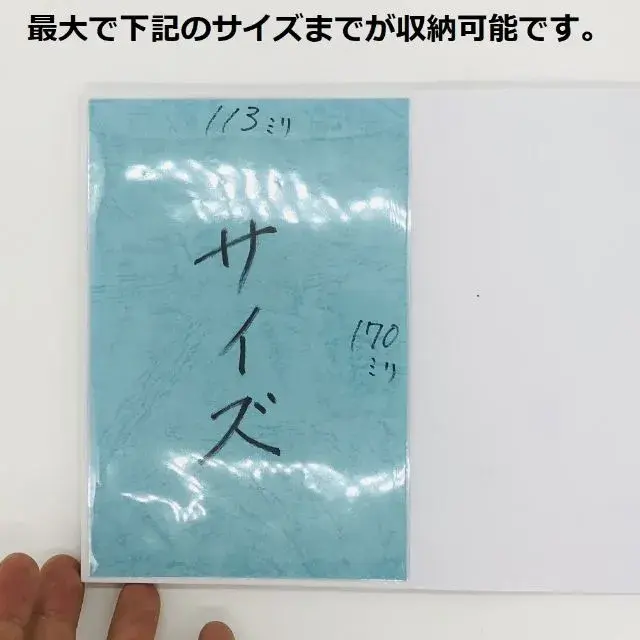 最大で下記のサイズまでが収納可能です。
113ミリ
サイズ
170
ミリ